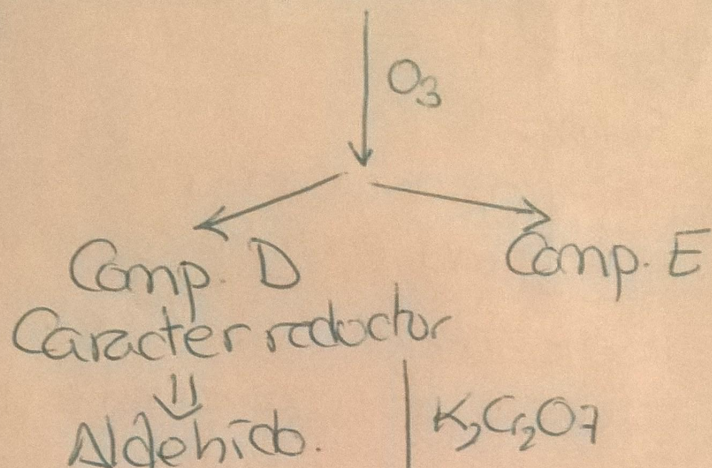 O₃
Comp. D
Comp. E
Caracter reductor
⇓
Aldehido.
K₂Cr₂O7